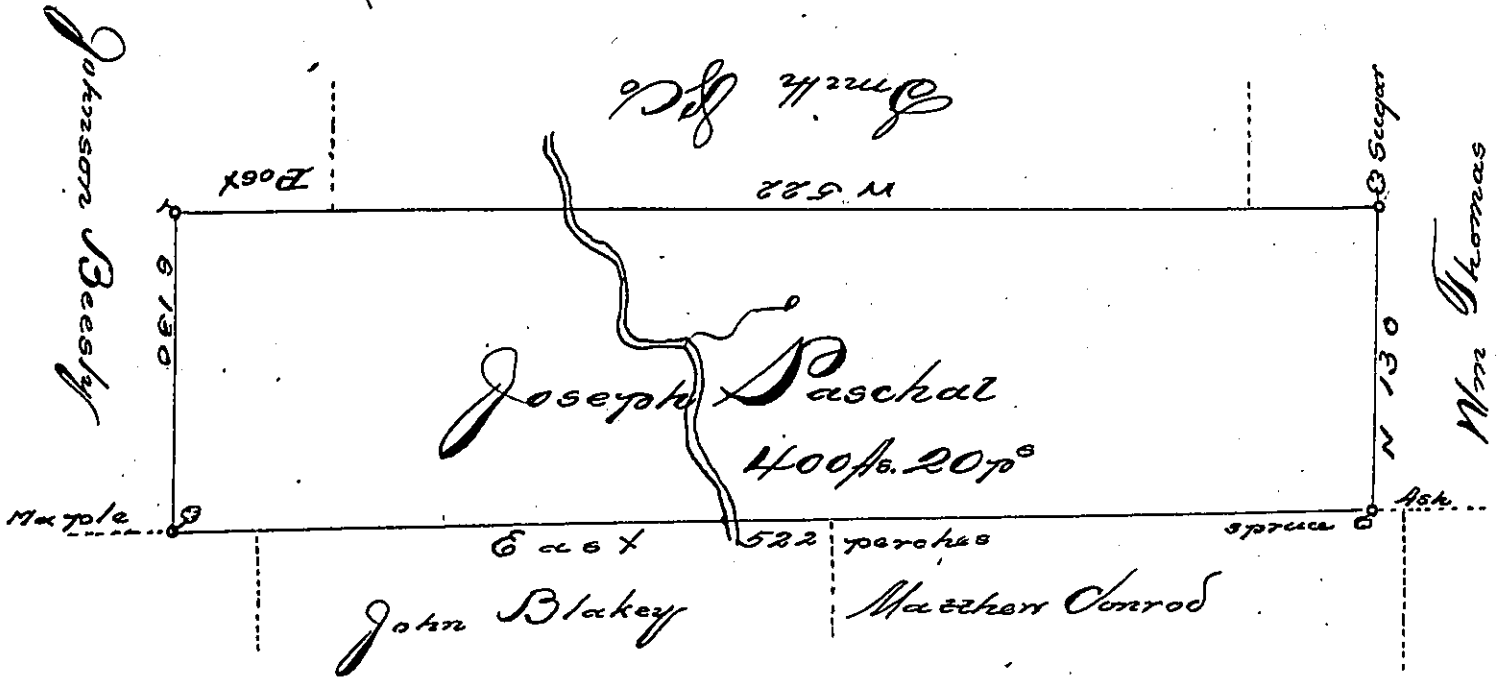 Smith & Co
Johnson Beesly
Post
W 522
Sugar
Wm Thomas
S 130
N 130
Joseph Paschal
400 As. 20 ps
Maple
East 522 perches
spruce
Ash
John Blakey
Matthew Conrod